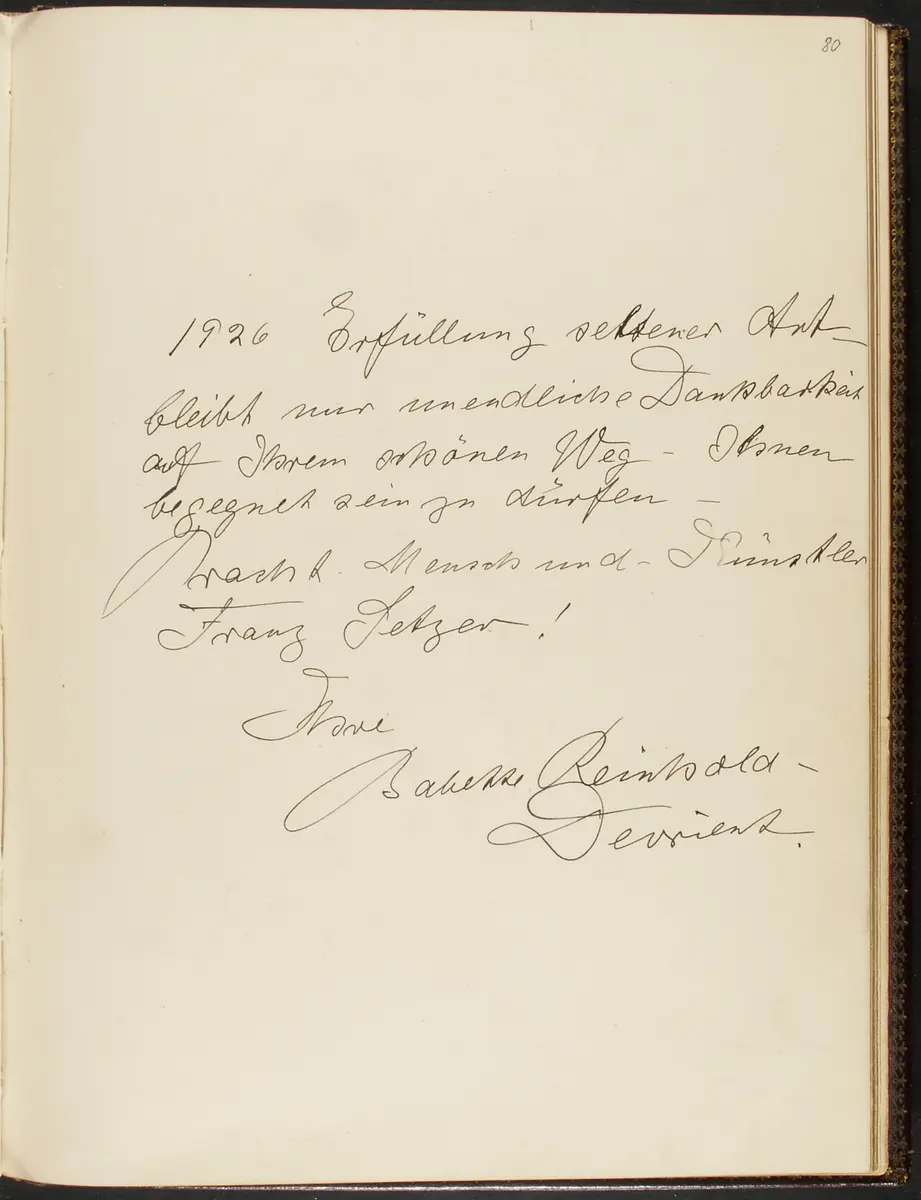 80
1926 Erfüllung seltener Art –
bleibt nur unendliche Dankbarkeit
auf Ihrem schönen Weg – Ihnen
begegnet sein zu dürfen –
Pracht. Mensch und – Künstler
Franz Setzer !
Ihre
Babette Reinhold –
Devrient.